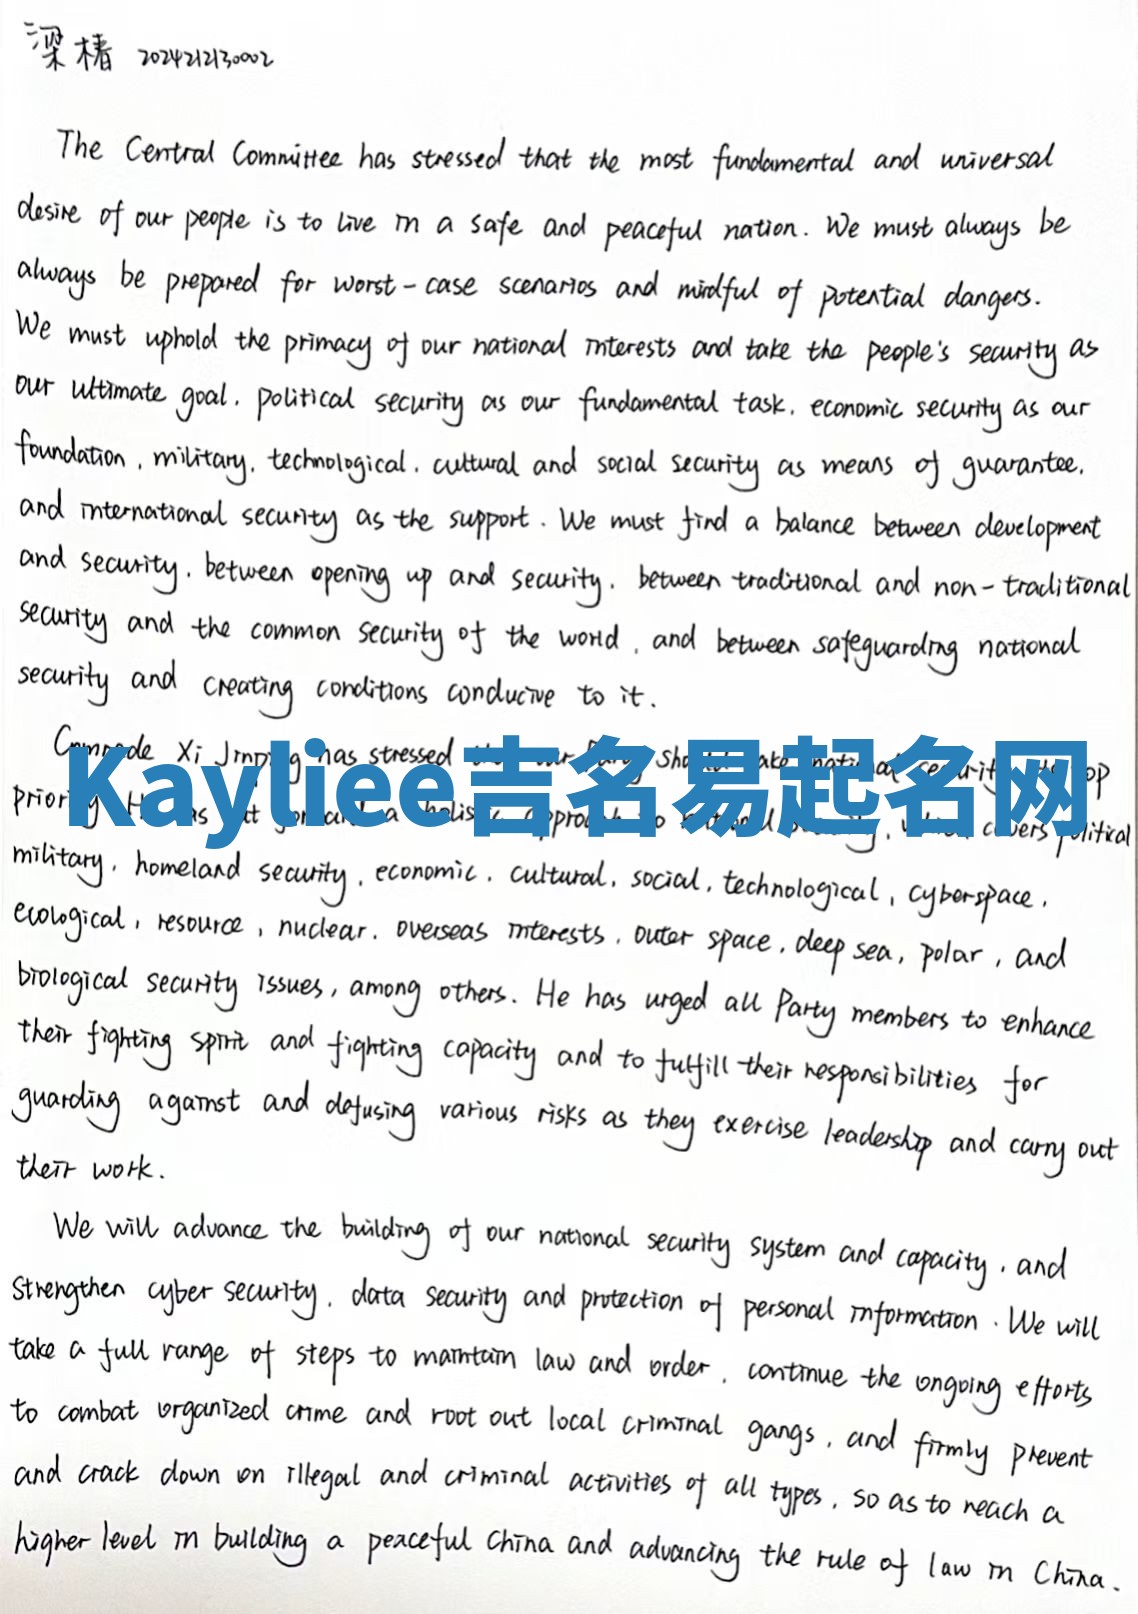 梁椿 2024212130002
The Central Committee has stressed that the most fundamental and universal
desire of our people is to live in a safe and peaceful nation. We must always be
always be prepared for worst-case scenarios and mindful of potential dangers.
We must uphold the primacy of our national interests and take the people's security as
our ultimate goal, political security as our fundamental task, economic security as our
foundation, military, technological, cultural and social security as means of guarantee,
and international security as the support. We must find a balance between development
and security, between opening up and security, between traditional and non-traditional
security and the common security of the world, and between safeguarding national
security and creating conditions conducive to it.
Comrade Xi Jinping has stressed
Kayliee吉名易起名网
political
military, homeland security, economic, cultural, social, technological, cyberspace,
ecological, resource, nuclear, overseas interests, outer space, deep sea, polar, and
biological security issues, among others. He has urged all Party members to enhance
their fighting spirit and fighting capacity and to fulfill their responsibilities for
guarding against and defusing various risks as they exercise leadership and carry out
their work.
We will advance the building of our national security system and capacity, and
strengthen cyber security, data security and protection of personal information. We will
take a full range of steps to maintain law and order, continue the ongoing efforts
to combat organized crime and root out local criminal gangs, and firmly prevent
and crack down on illegal and criminal activities of all types, so as to reach a
higher level in building a peaceful China and advancing the rule of law in China.